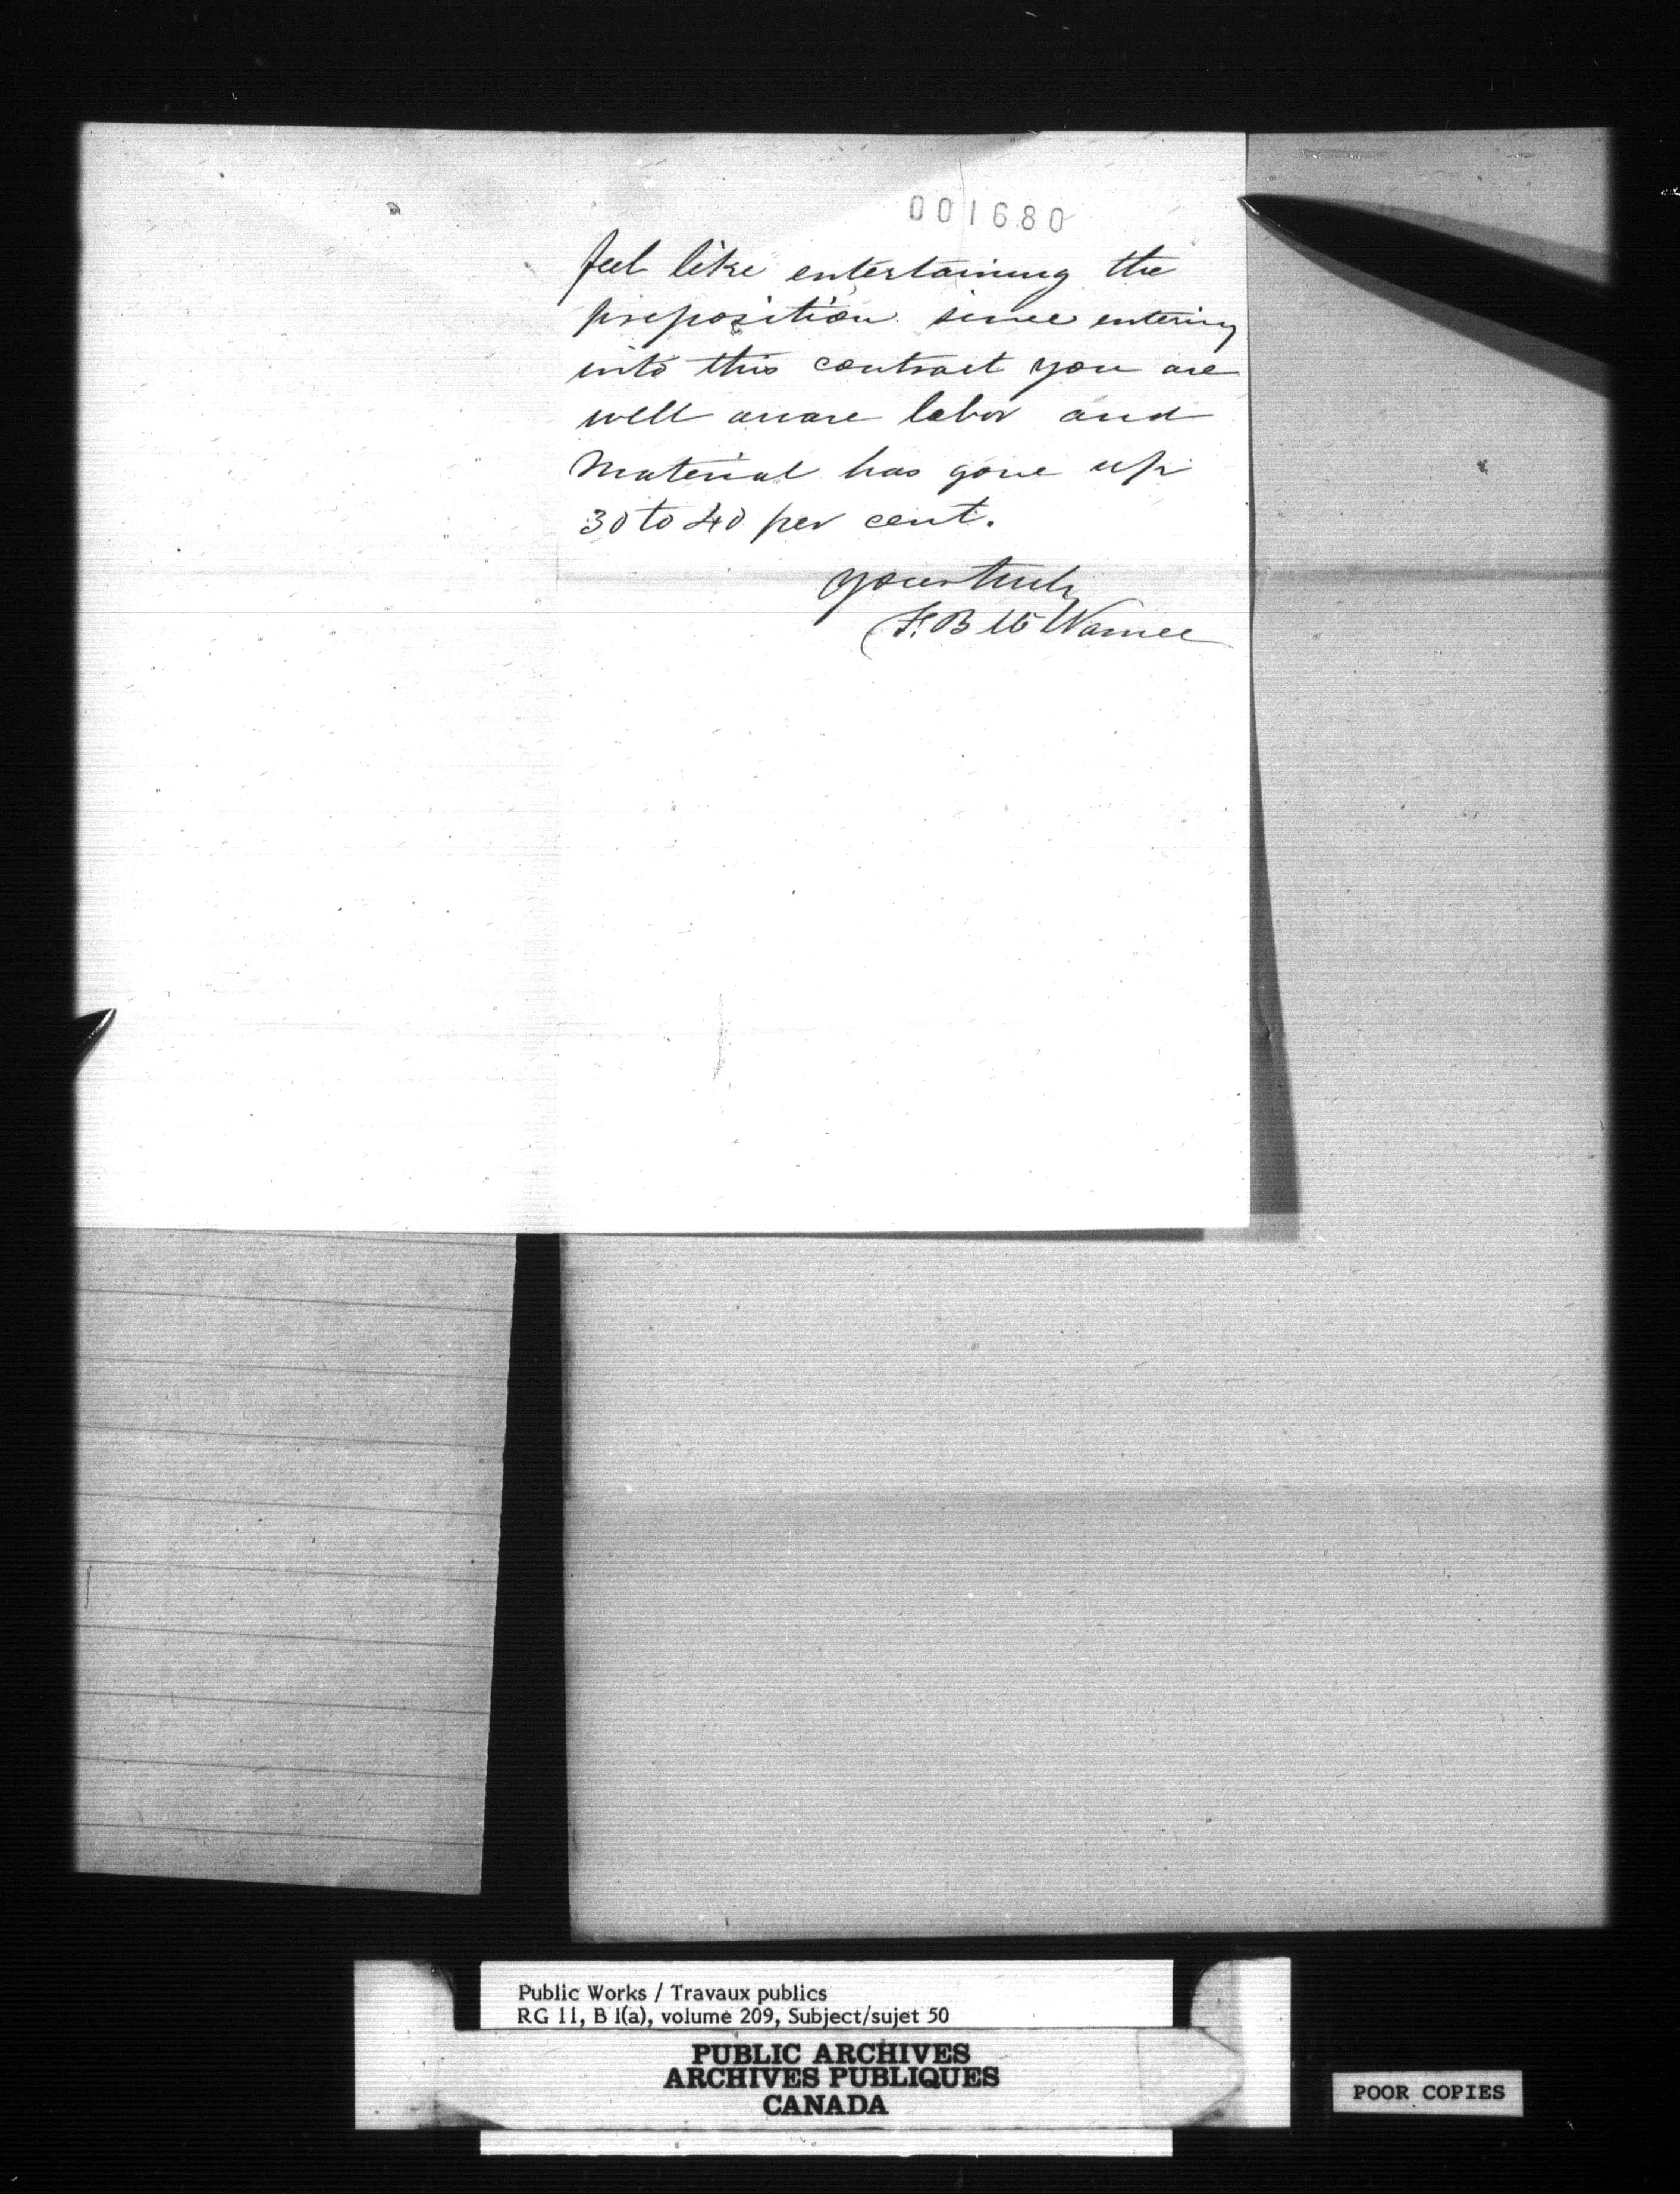 001680
feel like entertaining the
preposition since entering
into this contract you are
well aware labor and
Material has gone up
30 to 40 per cent.
yours truly
F. B Mc Namee
Public Works / Travaux publics
RG 11, B 1(a), volume 209, Subject/sujet 50
PUBLIC ARCHIVES
ARCHIVES PUBLIQUES
CANADA
POOR COPIES